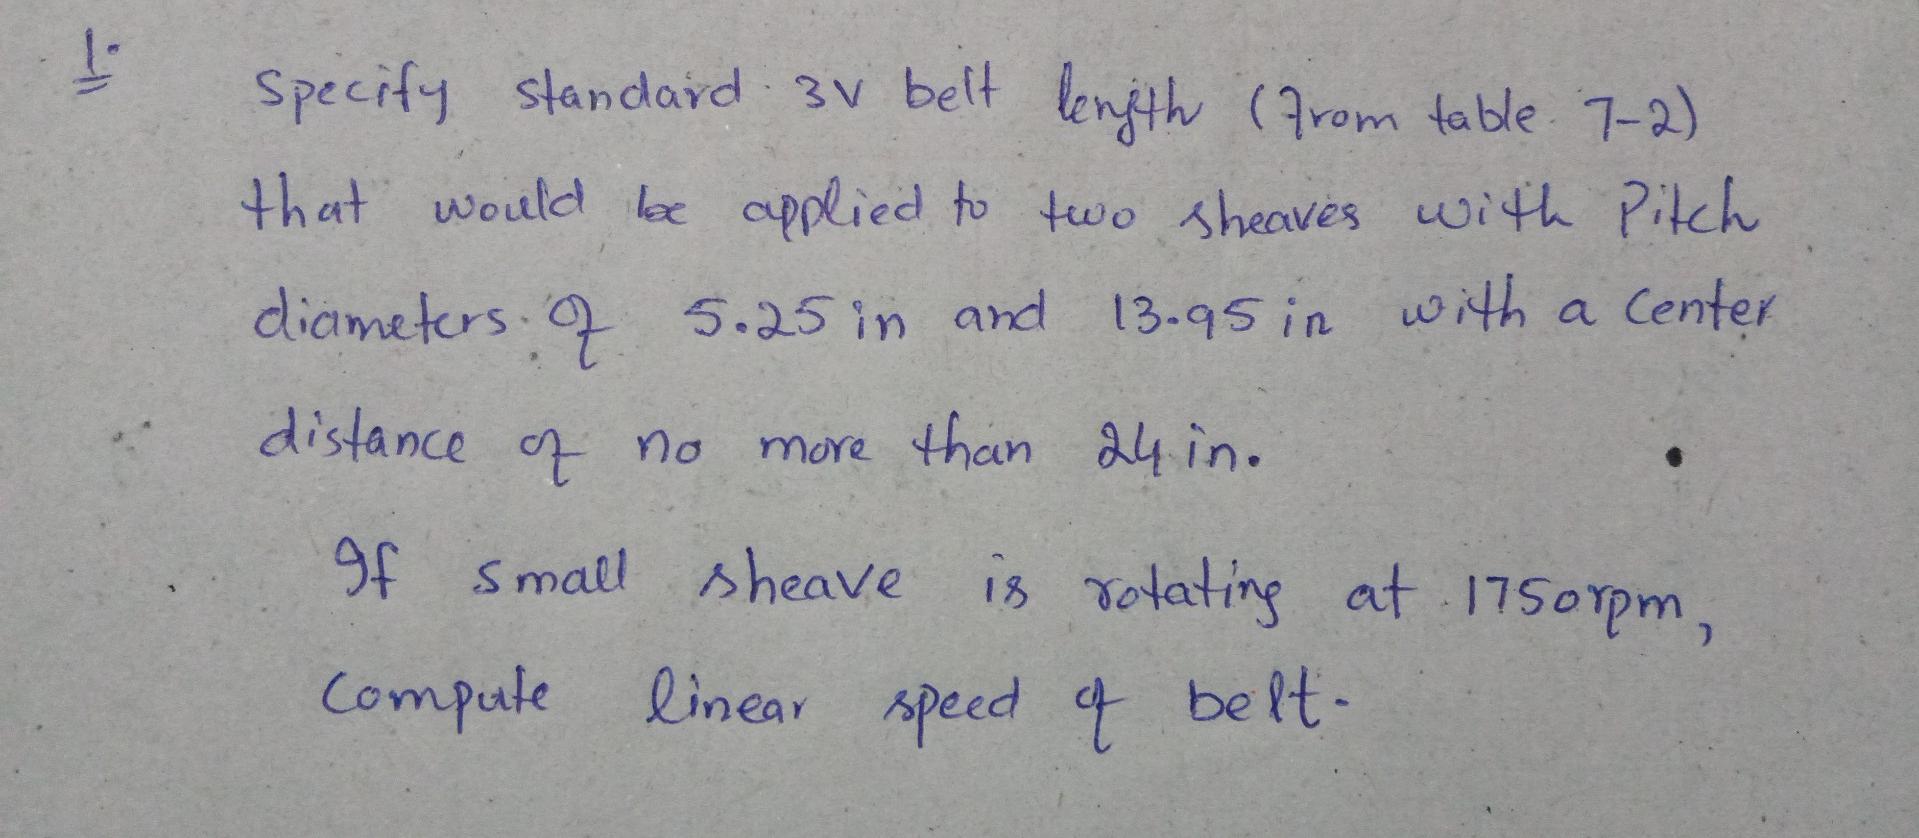 1.
Specify standard 3V belt length (From table 7-2)
that would be applied to two sheaves with Pitch
diameters of 5.25 in and 13.95 in with a center
distance of no more than 24 in.
If small sheave is rotating at 1750rpm,
Compute linear speed of belt.